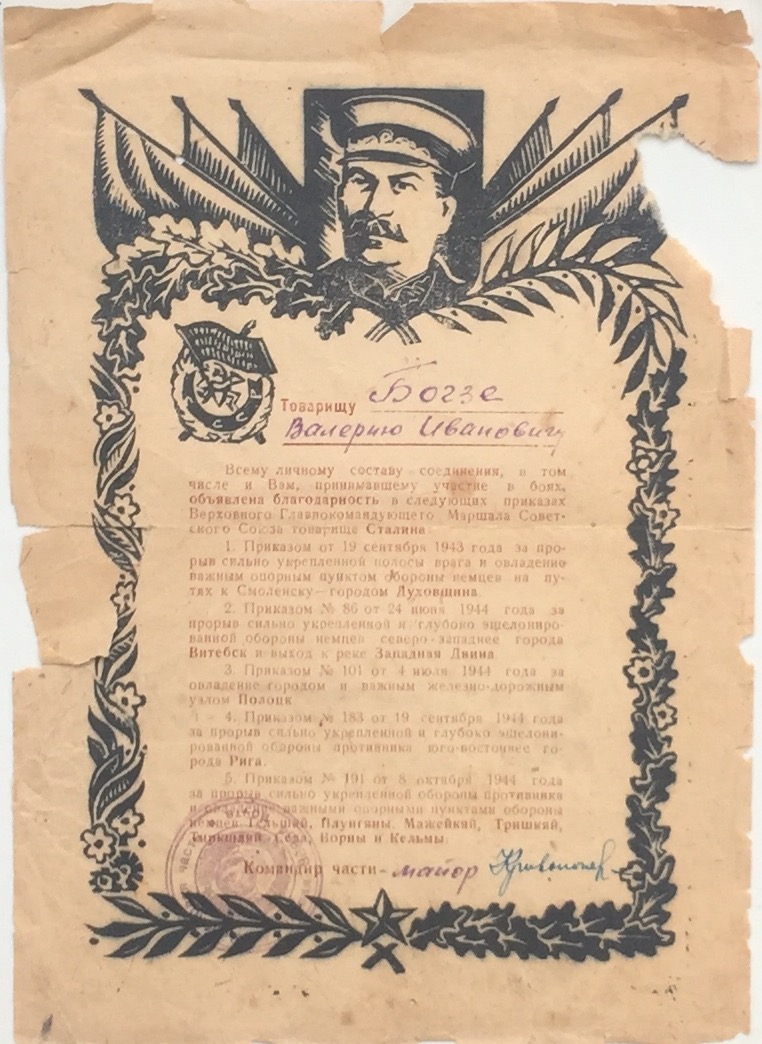 Товарищу Богзе
Валерию Ивановичу
Всему личному составу соединения, в том
числе и Вам, принимавшему участие в боях,
объявлена благодарность в следующих приказах
Верховного Главнокомандующего Маршала Совет-
ского Союза товарища Сталина:
1. Приказом от 19 сентября 1943 года за про-
рыв сильно укрепленной полосы врага и овладение
важным опорным пунктом обороны немцев на пу-
тях к Смоленску—городом Духовщина.
2. Приказом № 86 от 24 июня 1944 года за
прорыв сильно укрепленной и глубоко эшелониро-
ванной обороны немцев северо-западнее города
Витебск и выход к реке Западная Двина.
3. Приказом № 101 от 4 июля 1944 года за
овладение городом и важным железно-дорожным
узлом Полоцк
4. Приказом № 183 от 19 сентября 1944 года
за прорыв сильно укрепленной и глубоко эшелони-
рованной обороны противника юго-восточнее го-
рода Рига.
5. Приказом № 191 от 8 октября 1944 года
за прорыв сильно укрепленной обороны противника
и овладение важными опорными пунктами обороны
немцев Тельшяй, Плунгяны, Мажейкяй, Тришкяй,
Тыркшляй, Седа, Ворны и Кельмы.
Командир части- майор